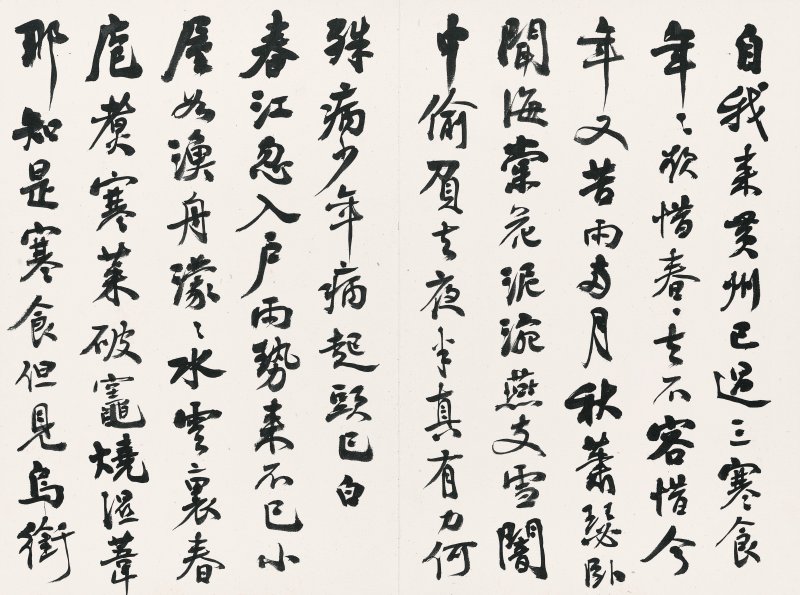 自我來黃州已過三寒食
年〻欲惜春〻去不容惜今
年又苦雨兩月秋蕭瑟臥
聞海棠花泥涴燕支雪闇
中偷負去夜半真有力何
殊病少年病起頭已白
春江忽入戶雨勢來不已小
屋如漁舟濛〻水雲裏春
庖煮寒菜破竈燒濕葦
那知是寒食但見烏銜